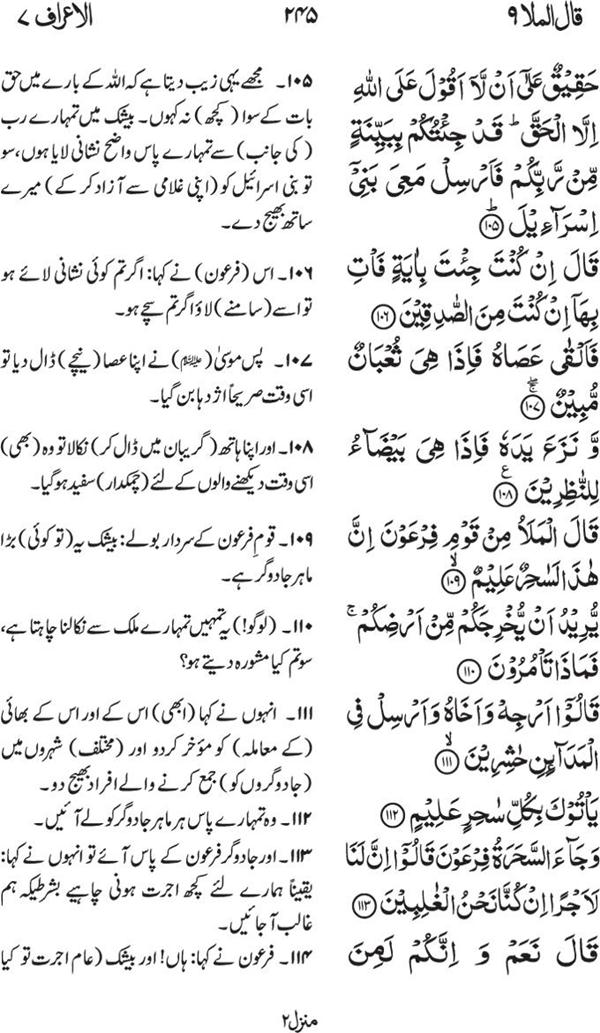 قال الملا ۹
۲۴۵
الاعراف ۷
حَقِيْقٌ عَلٰۤى اَنْ لَّاۤ اَقُوْلَ عَلَى اللّٰهِ
اِلَّا الْحَقَّ ؕ قَدْ جِئْتُكُمْ بِبَيِّنَةٍ
مِّنْ رَّبِّكُمْ فَاَرْسِلْ مَعِيَ بَنِيْۤ
اِسْرَآءِيْلَ ؕ ۱۰۵
قَالَ اِنْ كُنْتَ جِئْتَ بِاٰيَةٍ فَاْتِ
بِهَاۤ اِنْ كُنْتَ مِنَ الصّٰدِقِيْنَ ۱۰۶
فَاَلْقٰى عَصَاهُ فَاِذَا هِيَ ثُعْبَانٌ
مُّبِيْنٌ ۚۖ ۱۰۷
وَّ نَزَعَ يَدَهٗ فَاِذَا هِيَ بَيْضَآءُ
لِلنّٰظِرِيْنَ ۧ ۱۰۸
قَالَ الْمَلَاُ مِنْ قَوْمِ فِرْعَوْنَ اِنَّ
هٰذَا لَسٰحِرٌ عَلِيْمٌ ۙ ۱۰۹
يُّرِيْدُ اَنْ يُّخْرِجَكُمْ مِّنْ اَرْضِكُمْ ۚ
فَمَاذَا تَاْمُرُوْنَ ۱۱۰
قَالُوْۤا اَرْجِهْ وَ اَخَاهُ وَ اَرْسِلْ فِي
الْمَدَآىِٕنِ حٰشِرِيْنَ ۙ ۱۱۱
يَاْتُوْكَ بِكُلِّ سٰحِرٍ عَلِيْمٍ ۱۱۲
وَ جَآءَ السَّحَرَةُ فِرْعَوْنَ قَالُوْۤا اِنَّ لَنَا
لَاَجْرًا اِنْ كُنَّا نَحْنُ الْغٰلِبِيْنَ ۱۱۳
قَالَ نَعَمْ وَ اِنَّكُمْ لَمِنَ
۱۰۵۔ مجھے یہی زیب دیتا ہے کہ اللہ کے بارے میں حق
بات کے سوا (کچھ) نہ کہوں۔ بیشک میں تمہارے رب
(کی جانب) سے تمہارے پاس واضح نشانی لایا ہوں، سو
تو بنی اسرائیل کو (اپنی غلامی سے آزاد کر کے) میرے
ساتھ بھیج دے۔
۱۰۶۔ اس (فرعون) نے کہا: اگر تم کوئی نشانی لائے ہو
تو اسے (سامنے) لاؤ اگر تم سچے ہو۔
۱۰۷۔ پس موسیٰ (علیہ السلام) نے اپنا عصا (نیچے) ڈال دیا تو
اسی وقت صریحاً اژدہا بن گیا۔
۱۰۸۔ اور اپنا ہاتھ (گریبان میں ڈال کر) نکالا تو وہ (بھی)
اسی وقت دیکھنے والوں کے لئے (چمکدار) سفید ہو گیا۔
۱۰۹۔ قومِ فرعون کے سردار بولے: بیشک یہ (تو کوئی) بڑا
ماہر جادوگر ہے۔
۱۱۰۔ (لوگو!) یہ تمہیں تمہارے ملک سے نکالنا چاہتا ہے،
سو تم کیا مشورہ دیتے ہو؟
۱۱۱۔ انہوں نے کہا (ابھی) اس کے اور اس کے بھائی
(کے معاملہ) کو مؤخر کردو اور (مختلف) شہروں میں
(جادوگروں کو) جمع کرنے والے افراد بھیج دو۔
۱۱۲۔ وہ تمہارے پاس ہر ماہر جادوگر کو لے آئیں۔
۱۱۳۔ اور جادوگر فرعون کے پاس آئے تو انہوں نے کہا:
یقیناً ہمارے لئے کچھ اجرت ہونی چاہیے بشرطیکہ ہم
غالب آ جائیں۔
۱۱۴۔ فرعون نے کہا: ہاں! اور بیشک (عام اجرت تو کیا
منزل ۲